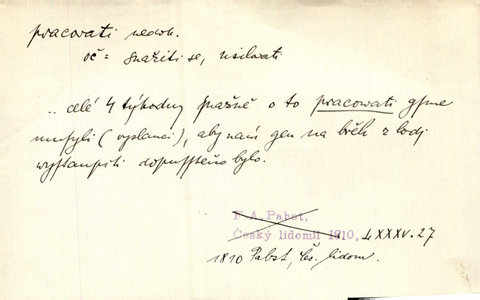 pracovati nedok.
oč = snažiti se, usilovati
.. celé 4 týhodny snažně o to pracovati gsme
musyli (vyslanci), aby nám gen na břeh z lodj
wystaupiti dopusstěno bylo.
F. A. Pabst,
Český lidomil 1810, LXXXV. 27
1810 Pabst, Čes. lidom.